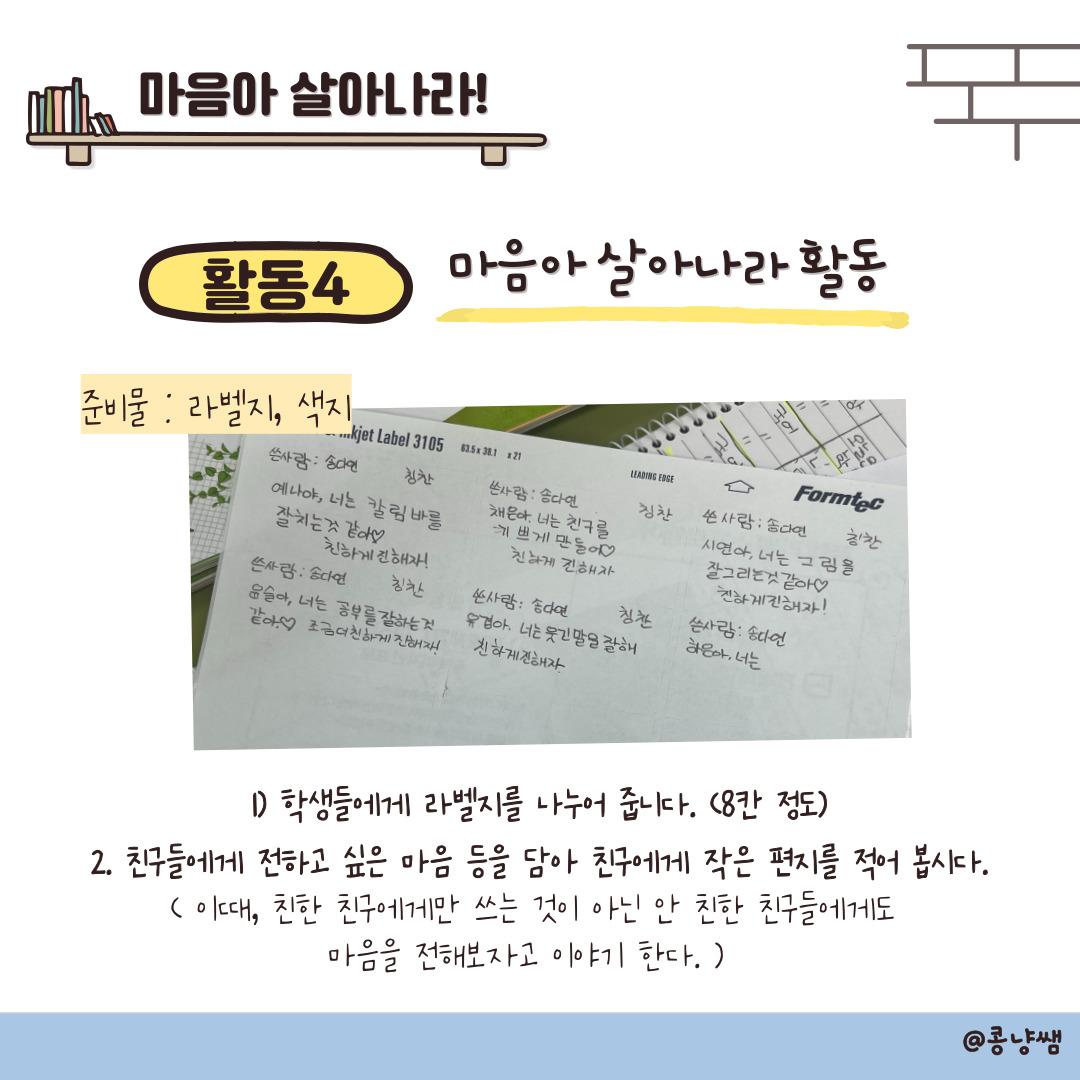 마음아 살아나라!
활동4
마음아 살아나라 활동
준비물 : 라벨지, 색지
Inkjet Label 3105
63.5 x 38.1 x 21
LEADING EDGE
Formtec
쓴사람 : 송다연 칭찬
예나야, 너는 칼림바를
잘치는것 같아♡
친하게 진해자!
쓴사람 : 송다연 칭찬
채운아, 너는 친구를
기쁘게 만들어♡
친하게 진해자
쓴사람 : 송다연 칭찬
시연아, 너는 그림을
잘그리는것같아♡
친하게진해자!
쓴사람 : 송다연 칭찬
윤슬아, 너는 공부를잘하는것
같아.♡ 조금더친하게진해자!
쓴사람 : 송다연 칭찬
유겸아. 너는웃긴말을잘해
친하게진해자.
쓴사람 : 송다연
하윤아, 너는
국어
1) 학생들에게 라벨지를 나누어 줍니다. (8칸 정도)
2. 친구들에게 전하고 싶은 마음 등을 담아 친구에게 작은 편지를 적어 봅시다.
( 이때, 친한 친구에게만 쓰는 것이 아닌 안 친한 친구들에게도
마음을 전해보자고 이야기 한다. )
@콩냥쌤